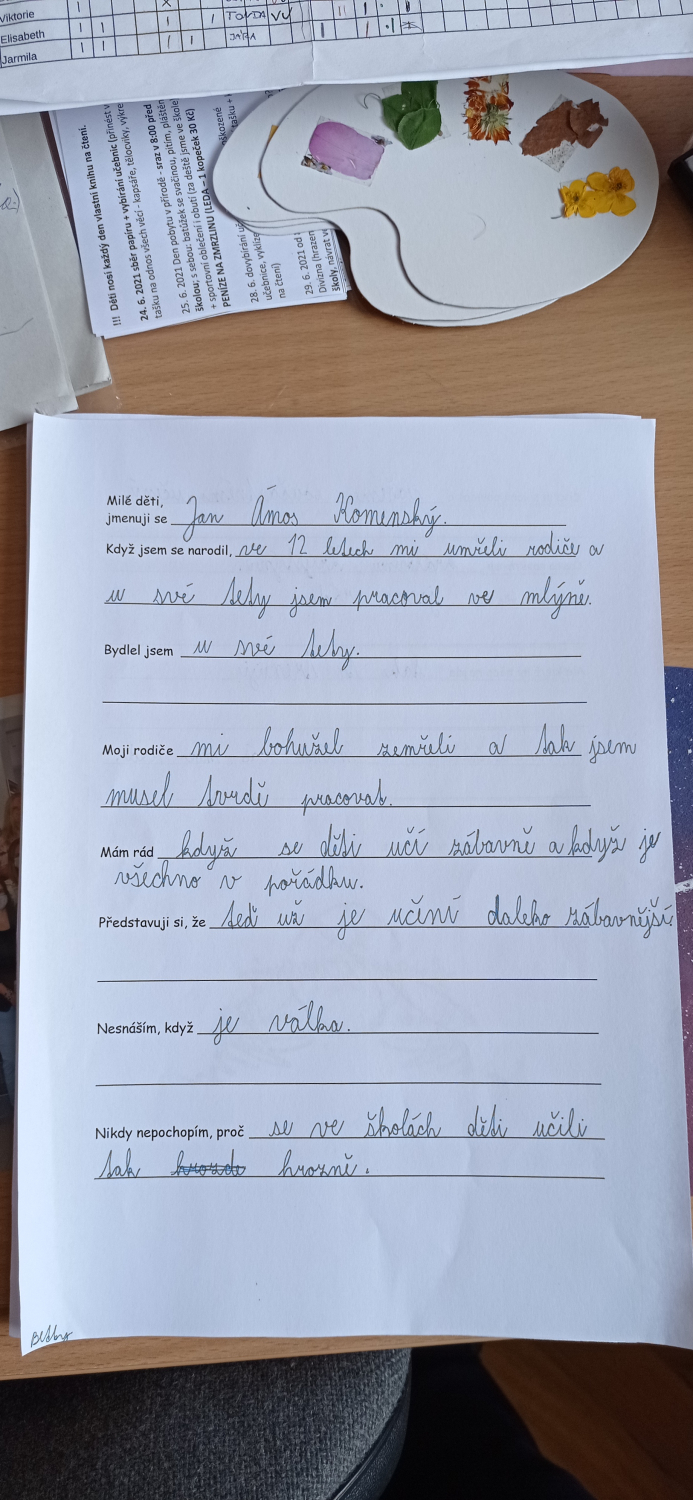 Viktorie
Elisabeth
Jarmila
TONDA VV
JÁRA
!!! Děti nosí každý den vlastní knihu na čtení.
24. 6. 2021 sběr papíru + vybírání učebnic (přinést
tašku na odnos všech věcí - kapsáře, tělocviky, výkre
25. 6. 2021 Den pobytu v přírodě - sraz v 8:00 před
školou; s sebou: batůžek se svačinou, pitím, pláštěn
+ sportovní oblečení i obutí (za deště jsme ve škole)
PENÍZE NA ZMRZLINU (LEDA – 1 kopeček 30 Kč)
28. 6. dovybírání
učebnice, vyklize
na čtení)
29. 6. 2021 od
Divizna (hrazen
školy, návrat
Milé děti,
jmenuji se Jan Ámos Komenský.
Když jsem se narodil, ve 12 letech mi umřeli rodiče a
u své tety jsem pracoval ve mlýně.
Bydlel jsem u své tety.
Moji rodiče mi bohužel zemřeli a tak jsem
musel tvrdě pracovat.
Mám rád když se děti učí zábavně a když je
všechno v pořádku.
Představuji si, že teď už je učiní daleko zábavnější
Nesnáším, když je válka.
Nikdy nepochopím, proč se ve školách děti učili
tak hrozně.